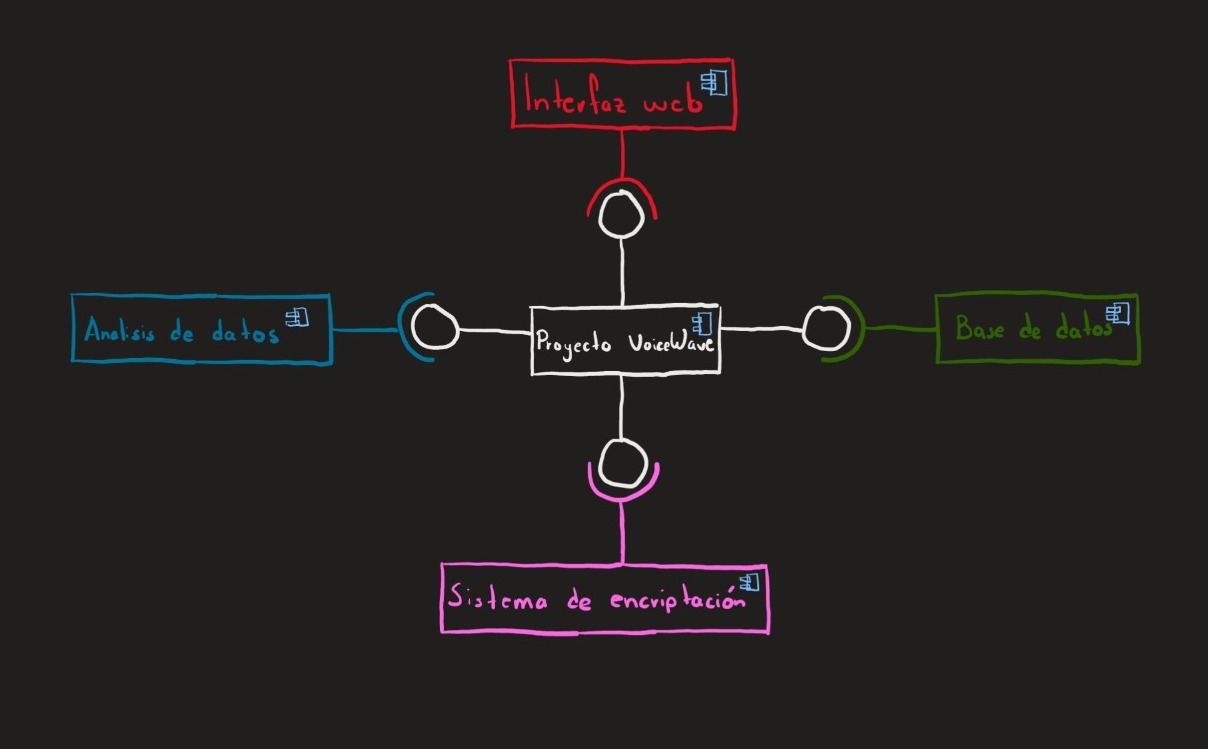 Interfaz web
Analisis de datos
Proyecto VoiceWave
Base de datos
Sistema de encriptación